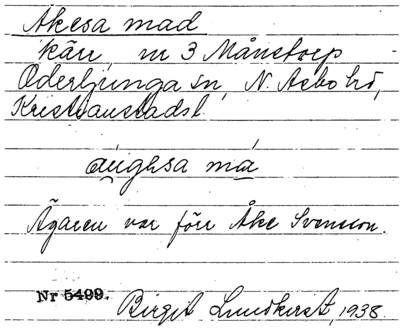 Åkesa mad
kärr, nr 3 Månstorp
Oderljunga sn, N. Åsbo hd,
Kristianstads l.
áughsa má
Ägaren var förr Åke Svensson.
Nr 5499. Birgit Lundkvist, 1938.